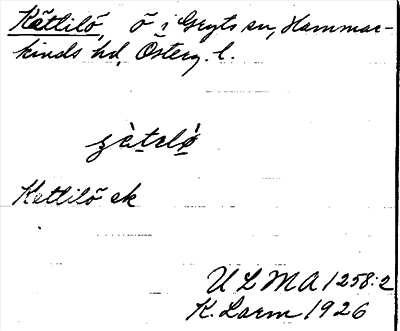 Kättilö, ö i Gryts sn, Hammar-
kinds hd, Österg. l.
Kettilö ek
ULMA 1258:2
K. Lorm 1926